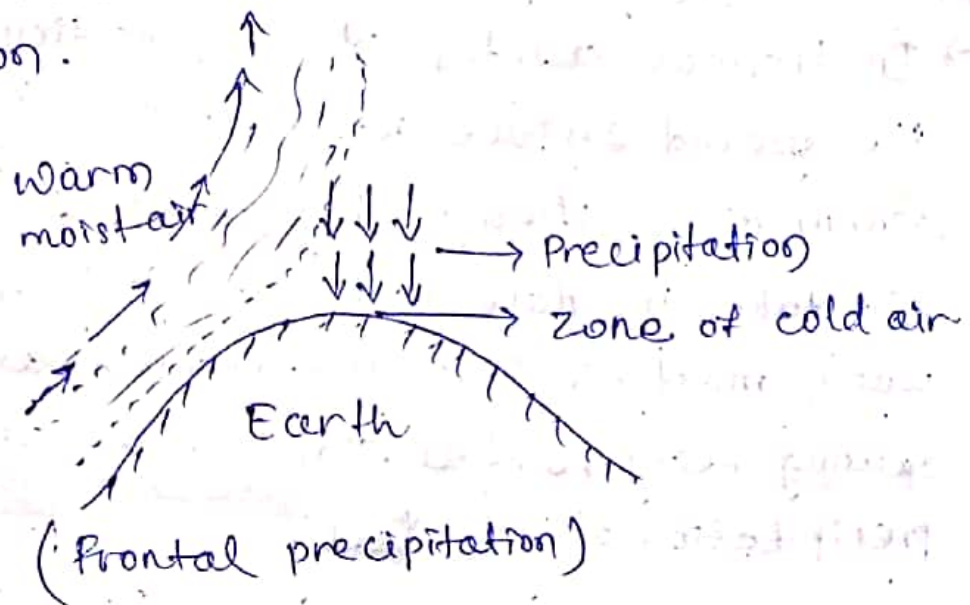 on.
warm
moist air
Precipitation
zone of cold air
Earth
(Frontal precipitation)